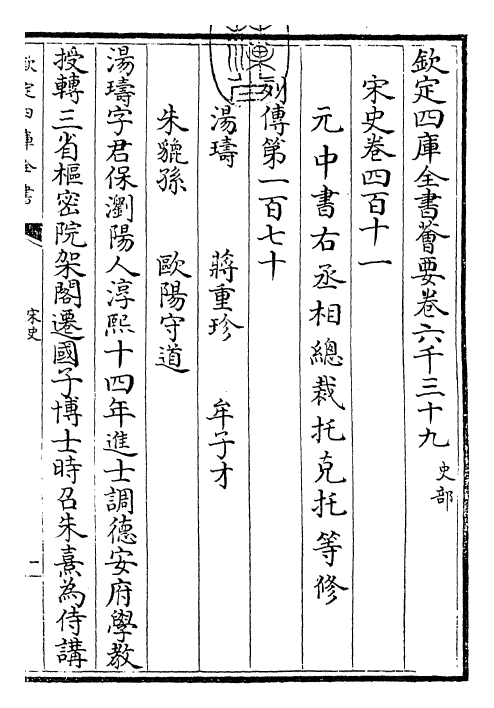 欽定四庫全書薈要卷六千三十九 史部
宋史卷四百十一
元中書右丞相總裁托克托等修
列傳第一百七十
湯璹 蔣重珍 牟子才
朱貔孫 歐陽守道
湯璹字君保瀏陽人淳熙十四年進士調德安府學教
授轉三省樞密院架閣遷國子博士時召朱熹為侍講
欽定四庫全書
宋史